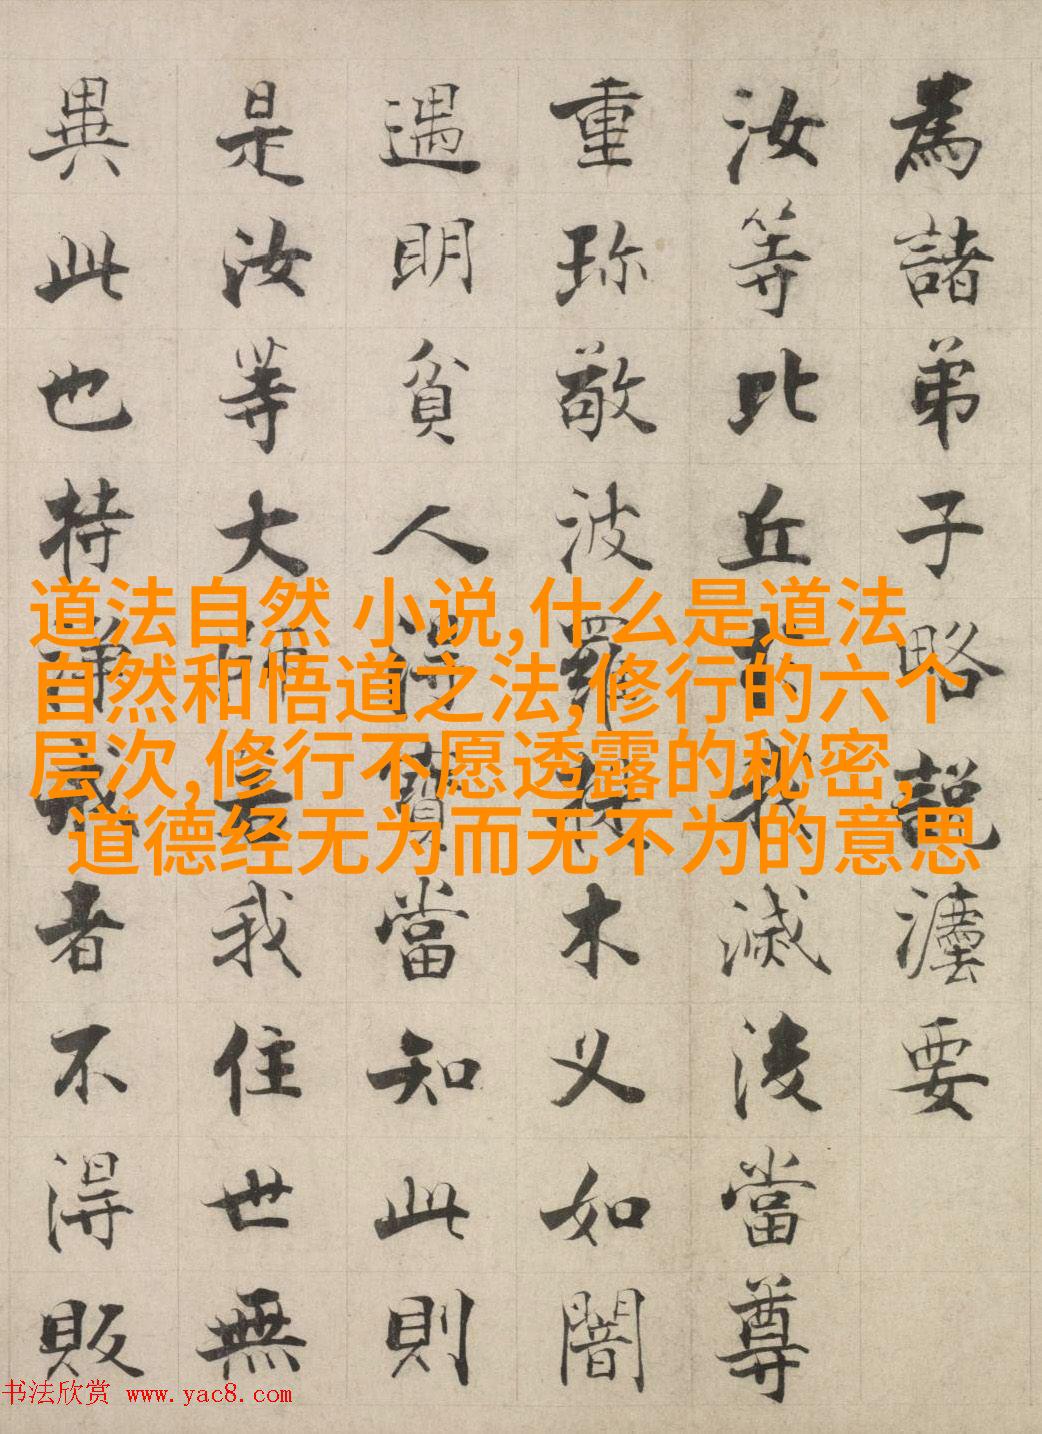 為諸弟子略說灋要
汝等比丘於我滅後當尊
重珎敬波羅提木叉如闇
遇明貧人得寶當知此則
是汝等大師若我住世無
異此也持淨戒者不得販
道法自然 小说,什么是道法
自然和悟道之法,修行的六个
层次,修行不愿透露的秘密,
道德经无为而无不为的意思
书法欣赏 www.yac8.com